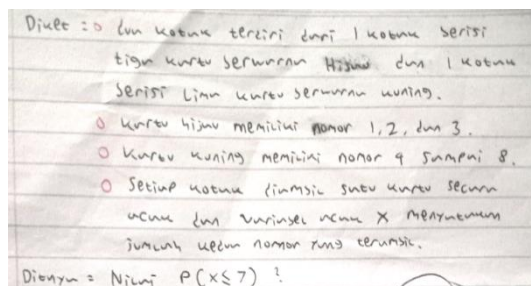 Diket : o dua kotak terdiri dari 1 kotak berisi
tiga kartu berwarna Hijau dan 1 kotak
berisi Lima kartu berwarna kuning.
o kartu hijau memiliki nomor 1, 2, dan 3.
o Kartu kuning memiliki nomor 4 sampai 8.
o Setiap kotak diambil satu kartu secara
acak dan variabel acak X menyatakan
jumlah kedua nomor yang terambil.
Ditanya = Nilai P(X≤7) ?